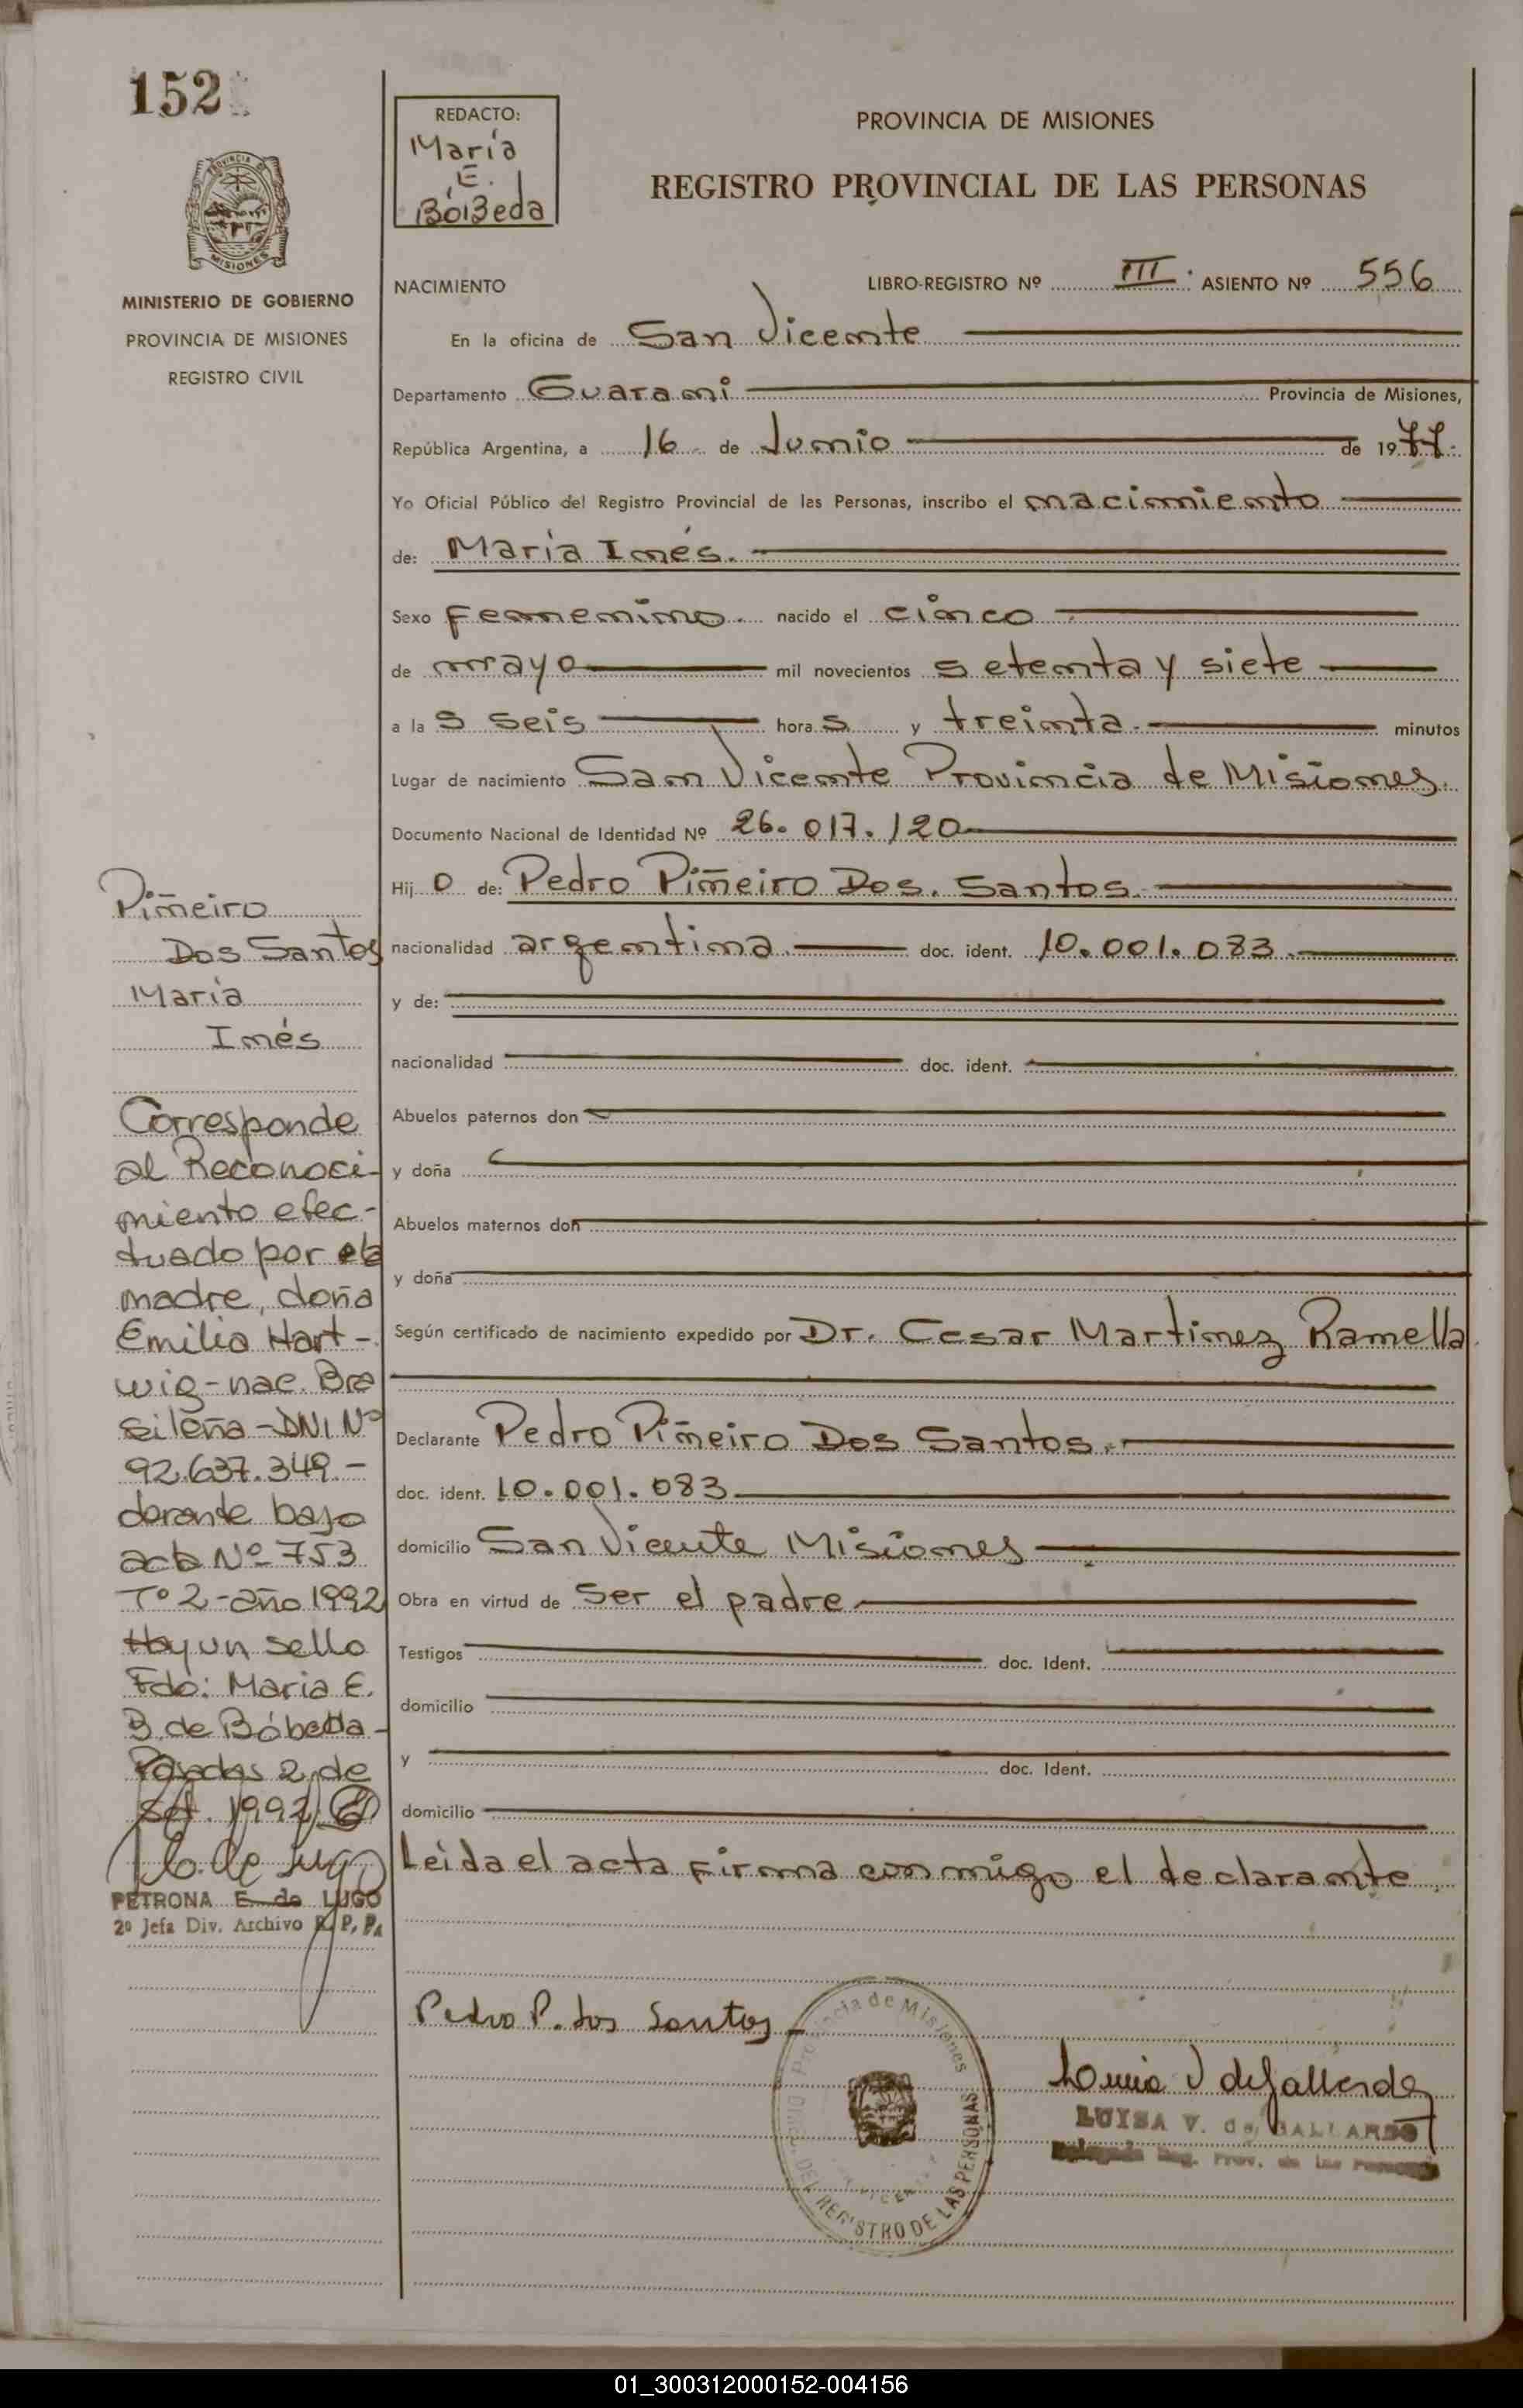 152
REDACTO:
María
E.
BóBeda
PROVINCIA DE MISIONES
REGISTRO PROVINCIAL DE LAS PERSONAS
PROVINCIA DE
MISIONES
MINISTERIO DE GOBIERNO
PROVINCIA DE MISIONES
REGISTRO CIVIL
NACIMIENTO
LIBRO-REGISTRO Nº III. ASIENTO Nº 556
En la oficina de San Vicente
Departamento Guarani Provincia de Misiones,
República Argentina, a 16 de Junio de 1977.
Yo Oficial Público del Registro Provincial de las Personas, inscribo el nacimiento
de: María Inés.
Sexo Femenino. nacido el cinco
de mayo mil novecientos setenta y siete
a las seis horas y treinta. minutos
Lugar de nacimiento San Vicente Provincia de Misiones.
Documento Nacional de Identidad Nº 26.017.120
Hijo de: Pedro Piñeiro Dos. Santos.
nacionalidad argentina. doc. ident. 10.001.083.
y de:
nacionalidad doc. ident.
Abuelos paternos don
y doña
Abuelos maternos don
y doña
Según certificado de nacimiento expedido por Dr. Cesar Martinez Ramella.
Declarante Pedro Piñeiro Dos Santos.
doc. ident. 10.001.083
domicilio San Vicente Misiones
Obra en virtud de ser el padre
Testigos doc. Ident.
domicilio
y doc. Ident.
domicilio
Leida el acta firma conmigo el declarante.
Piñeiro
Dos Santos
María
Inés
Corresponde
al Reconoci-
miento efec-
tuado por la
madre, doña
Emilia Hart-
wig-nac. Bra
sileña-DNI Nº
92.637.349.-
dorante bajo
acta Nº 753
Tº 2-año 1992
Hay un sello
Fdo: Maria E.
B. de Bóbeda-
Posadas 2 de
set. 1992
PETRONA E. de LUGO
2º Jefa Div. Archivo R. P. P.
Pedro P. dos Santos
Provincia de Misiones
DEL REGISTRO DE LAS PERSONAS
LUISA V. de GALLARDO
Reg. Prov. de las Personas
01_300312000152-004156